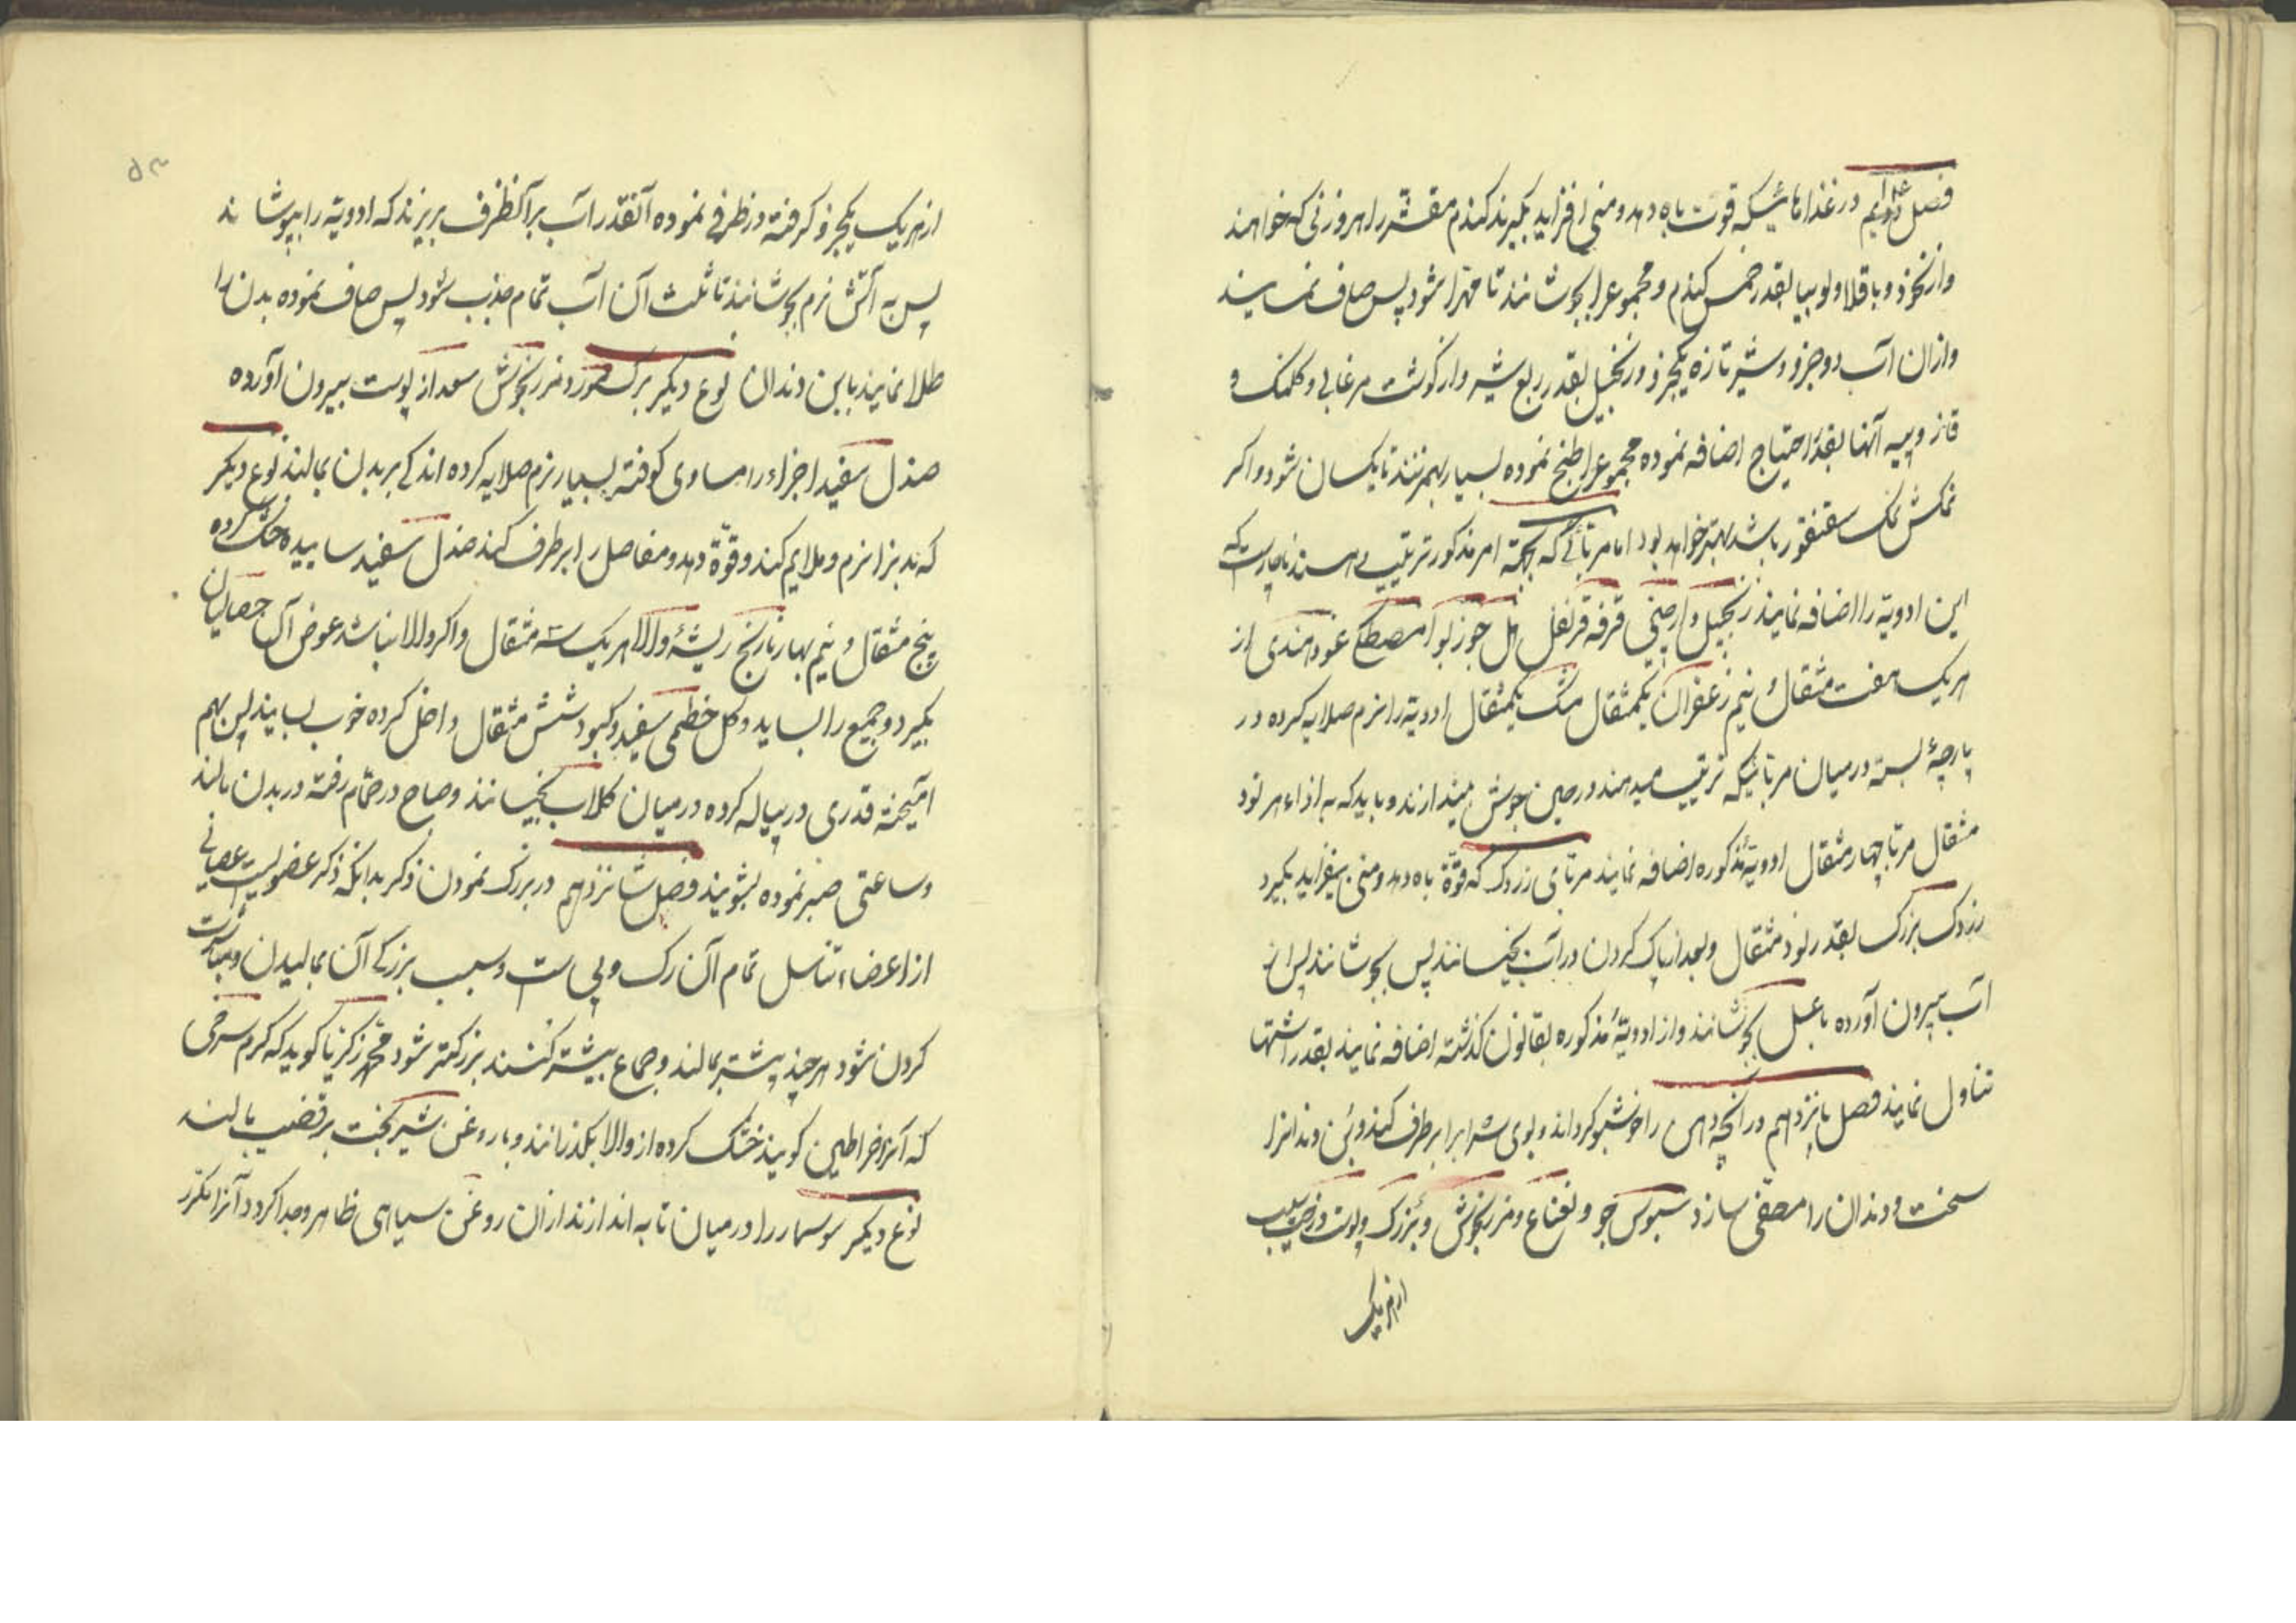 فصل در غذاهائیکه قوت باه دهد و منی افزاید بگیرند کندم مقشر را هر وزنی که خواهند
و از نخود و باقلا و لوبیا بقدر خمس کندم و مجموعرا بجوشانند تا مهرا شود پس صاف نمایند
و ازان آب دو جزو و شیر تازه یکجزو و زنجبیل بقدر ربع شیر و از کوشت مرغابی و کلنک و
قاز و پیه آنها بقدر احتیاج اضافه نموده مجموعرا طبخ نموده بسیار بهم زنند تا یکسان شود و اکر
نمکش نمک سقنقور باشد بهتر خواهد بود اما مرباتی که بجهة امر مذکور ترتیب دهند ناچارست که
این ادویة را اضافه نمایند زنجبیل دارچینی قرفه قرنفل هل جوز بوا مصطکی عود هندی از
هریک هفت مثقال و نیم زعفران یکمثقال مشک یکمثقال ادویة را نرم صلایه کرده در
پارچهٔ بسته در میان مربائیکه ترتیب میدهند در حین جوش میندازند و باید که به ازاء هر نود
مثقال مربا چهار مثقال ادویهٔ مذکوره اضافه نمایند مربای زردک که قوة باه دهد و منی بیفزاید بکیرد
زردک بزرک بقدر نود مثقال و بعد از پاک کردن در آب بخیسانند پس بجوشانند پس از
آب بیرون آورده با عسل بجوشانند و از ادویهٔ مذکوره بقانون کذشته اضافه نمایند بقدر اشتها
تناول نمایند فصل پانزدهم در آنچه دهن را خوشبو کرداند و بوی شرابرا برطرف کند و بن دندانرا
سخت و دندان را مصفی سازد سبوس جو و نعناع و مرزنجوش و پوست
از هریک
۵۳
از هریک یکجزو کرفته در ظرفی نموده آنقدر آب بر آنظرف بریزند که ادویة را بپوشاند
پس به آتش نرم بجوشانند تا ثلث آن آب تمام جذب شود پس صاف نموده بدن را
طلا نمایند با بن دندان نوع دیکر برک مورد مرزنجوش سعد از پوست بیرون آورده
صندل سفید اجزاء را مساوی کوفته بسیار نرم صلایه کرده اندکی بر بدن بمالند نوع دیکر
که بدنرا نرم و ملایم کند و قوة دهد و مفاصل را برطرف کند صندل سفید ساییده خشک کرده
پنج مثقال و نیم بهار نارنج ریشهٔ والا هریک سه مثقال و اکر والا نباشد عوض آن
بکیرد و جمیع را بساید و کل خطمی سفید و کبود شش مثقال داخل کرده خوب بسایند پس بهم
آمیخته قدری در پیاله کرده در میان کلاب بخیسانند و صباح در حمام رفته در بدن مالند
و ساعتی صبر نموده بشویند فصل شانزدهم در بزرک نمودن ذکر بدانکه ذکر عضویست عصبانی
از اعضاء تناسل تمام آن رک و پی ست و سبب بزرکی آن بمالیدن و مباشرت
کردن شود هر چند بیشتر بمالند و جماع بیشتر کنند بزرکتر شود محمد زکریا کوید که کرم سرخی
که آنرا خراطین کویند خشک کرده از والا بکذرانند و با روغن شیربخت بر قضیب مالند
نوع دیکر سوسمار را در میان تابه اندازند ازان روغن سیاهی ظاهر و جدا کردد آنرا مکرر